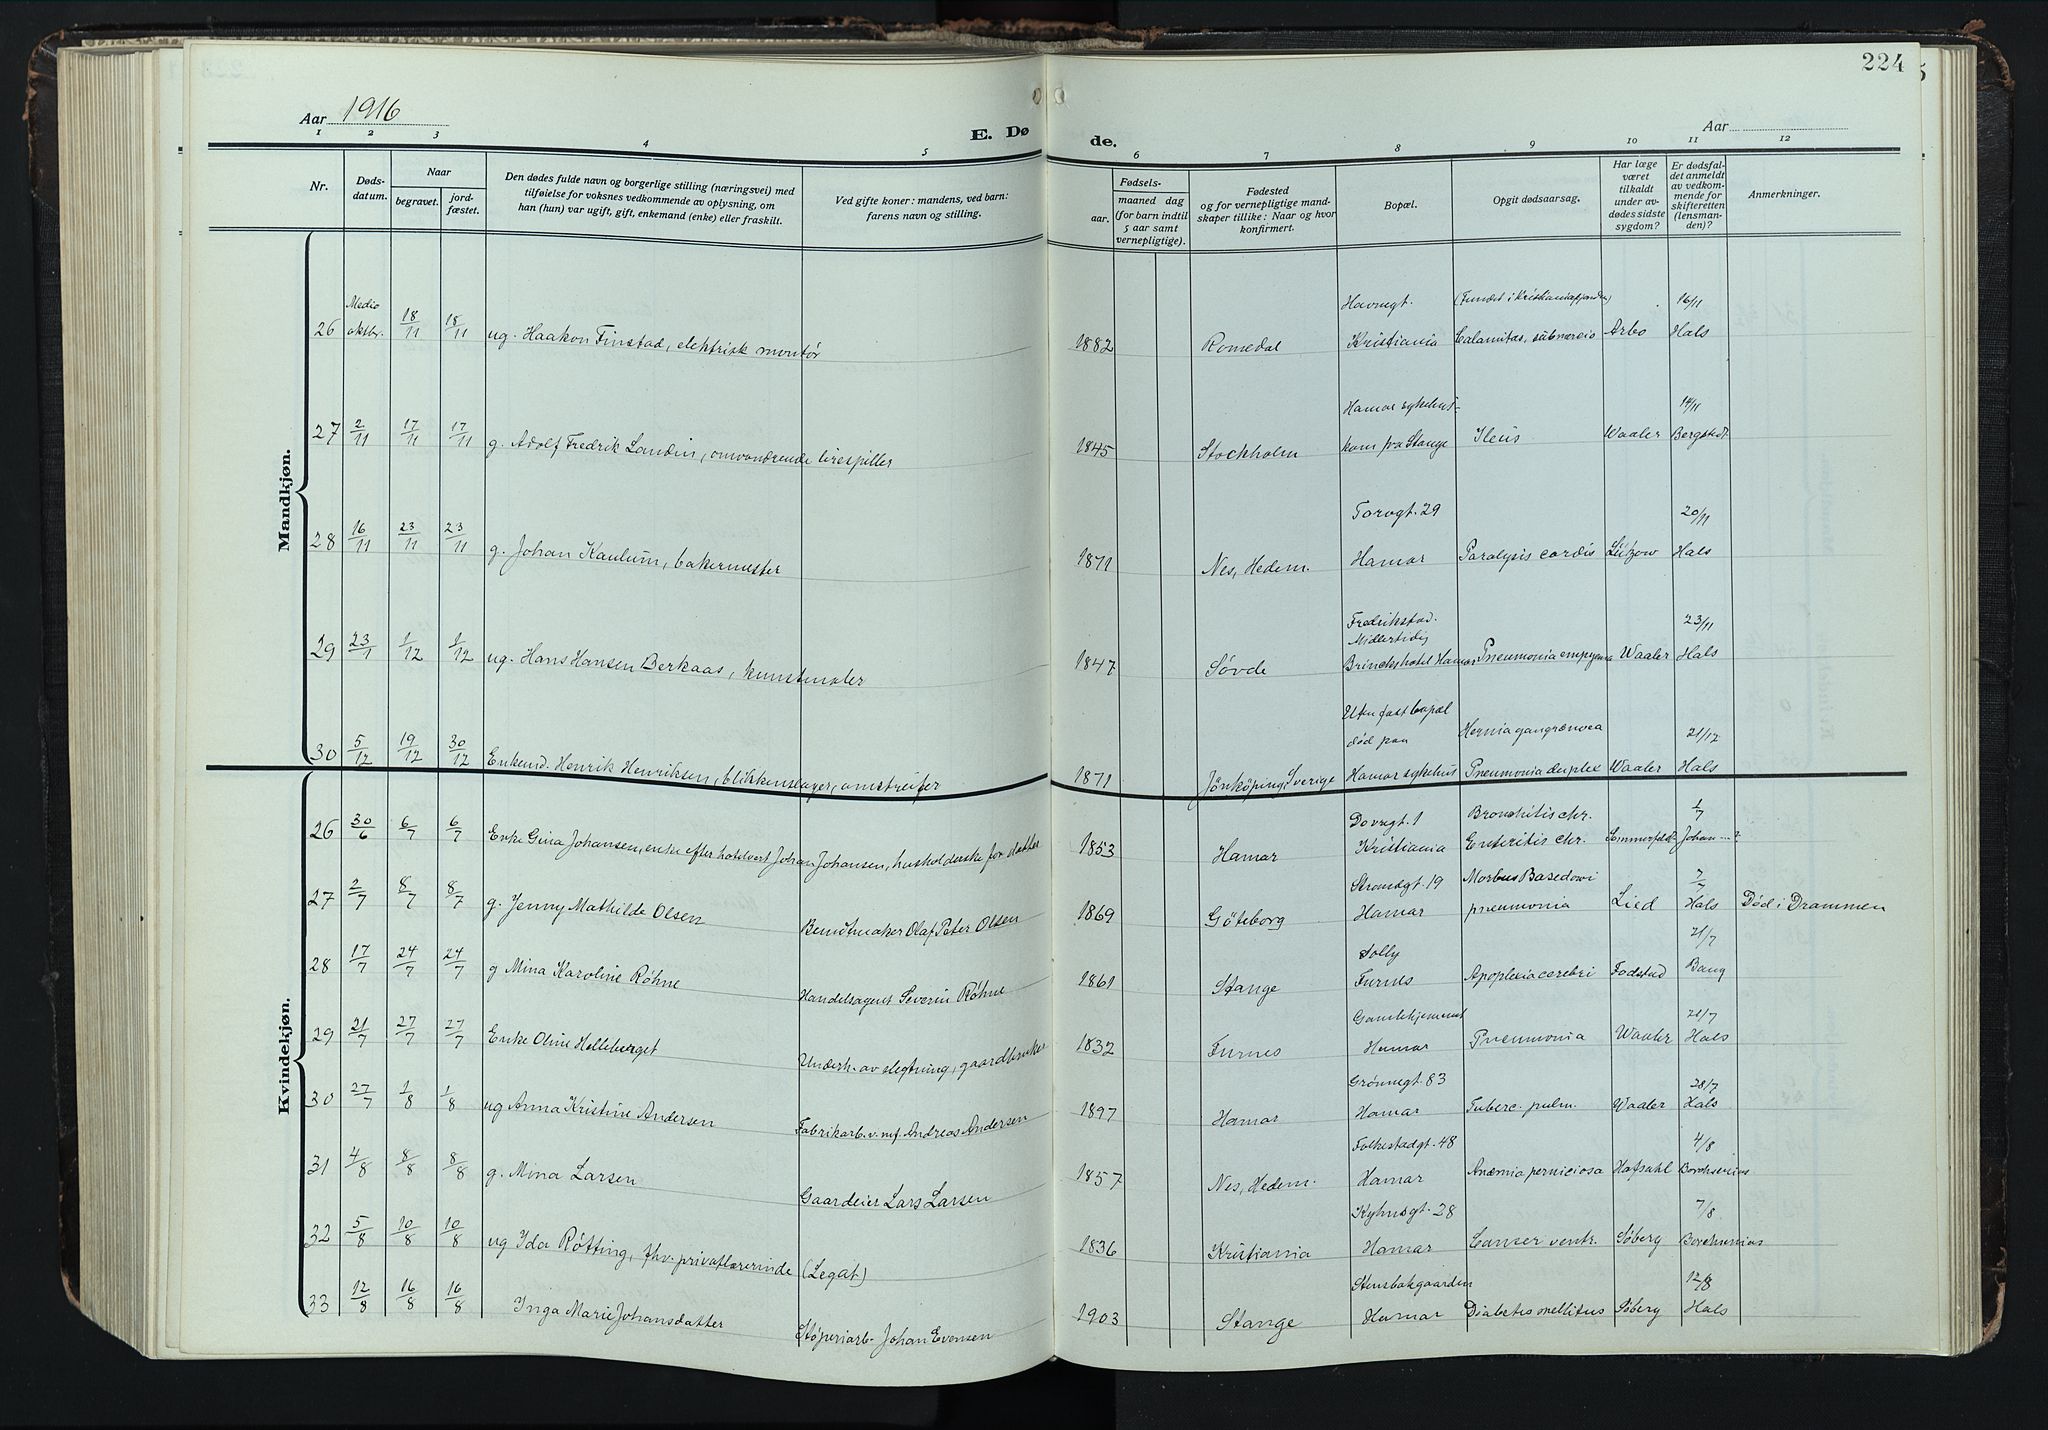 224
Aar 1916
E. Døde.
Aar
1 2 3 4 5 6 7 8 9 10 11 12
Nr.
Døds-
datum.
Naar
begravet.
jord-
fæstet.
Den dødes fulde navn og borgerlige stilling (næringsvei) med
tilføielse for voksnes vedkommende av oplysning, om
han (hun) var ugift, gift, enkemand (enke) eller fraskilt.
Ved gifte koner: mandens, ved barn:
farens navn og stilling.
Fødsels-
aar.
maaned dag
(for barn indtil
5 aar samt
vernepligtige).
Fødested
og for vernepligtige mand-
skaper tillike: Naar og hvor
konfirmert.
Bopæl.
Opgit dødsaarsag.
Har læge
været
tilkaldt
under av-
dødes sidste
sygdom?
Er dødsfal-
det anmeldt
av vedkom-
mende for
skifteretten
(lensman-
den)?
Anmerkninger.
Mandkjøn.
26 Medio oktbr. 18/11 18/11 ug. Haakon Finstad, elektrisk montør 1882 Romedal Havnegt. Kristiania (Fundet i Kristianiafjorden) Calamitas, submersio Arbo 16/11 Hals
27 2/11 17/11 17/11 g. Adolf Fredrik Landin, omvandrende lirespiller 1845 Stockholm Hamar sykehus kom fra Stange Ileus Waaler 14/11 Bergsted
28 16/11 23/11 23/11 g. Johan Kaulum, bakermester 1871 Nes, Hedem. Torvgt. 29 Hamar Paralysis cordis Lützow 20/11 Hals
29 23/1 1/12 1/12 ug. Hans Hansen Berkaas, kunstmaler 1847 Søvde Fredrikstad. Midlertidig Brinckshotel Hamar Pneumonia empyema Waaler 23/11 Hals
30 5/12 19/12 30/12 Enkemd. Henrik Henriksen, blikkenslager, omstreifer 1871 Jönköping, Sverige Uten fast bopæl død paa Hamar sykehus Hernia gangrænosa Pneumonia duplex Waaler 21/12 Hals
Kvindekjøn.
26 30/6 6/7 6/7 Enke Gina Johansen, enke efter hotelvert Johan Johansen, husholderske for datter 1853 Hamar Dovregt. 1 Kristiania Bronchitis chr. Enteritis chr. Sommerfeldt 1/7 Johan...?
27 2/7 8/7 8/7 g. Jenny Mathilde Olsen Bundtmaker Olaf Peter Olsen 1869 Göteborg Strandgt. 19 Hamar Morbus Basedowi pneumonia Lied 7/7 Hals Død i Drammen
28 17/7 24/7 24/7 g Mina Karoline Røhne Handelsagent Severin Røhne 1861 Stange Solly Furnes Apoplexia cerebri Fodstad 21/7 Bang
29 21/7 27/7 27/7 Enke Oline Helleberget Underh. av slegtning, gaardbruker 1832 Furnes Gamlehjemmet Hamar Pneumonia Waaler 21/7 Hals
30 27/7 1/8 1/8 ug Anna Kristine Andersen Fabrikarb. v. mf. Andreas Andersen 1897 Hamar Grønnegt. 83 Hamar Tuberc. pulm. Waaler 28/7 Hals
31 4/8 8/8 8/8 g. Mina Larsen Gaardeier Lars Larsen 1857 Nes, Hedem. Folkestadgt. 48 Hamar Anæmia perniciosa Hafsahl 4/8 Borchsenius
32 5/8 10/8 10/8 ug Ida Røtting, fhv. privatlærerinde (Legat) 1836 Kristiania Kyhnsgt. 28 Hamar Canser ventr. Søberg 7/8 Borchsenius
33 12/8 16/8 16/8 Inga Marie Johansdatter Støperiarb. Johan Evensen 1903 Stange Stensbakgaarden Hamar Diabetes mellitus Søberg 12/8 Hals